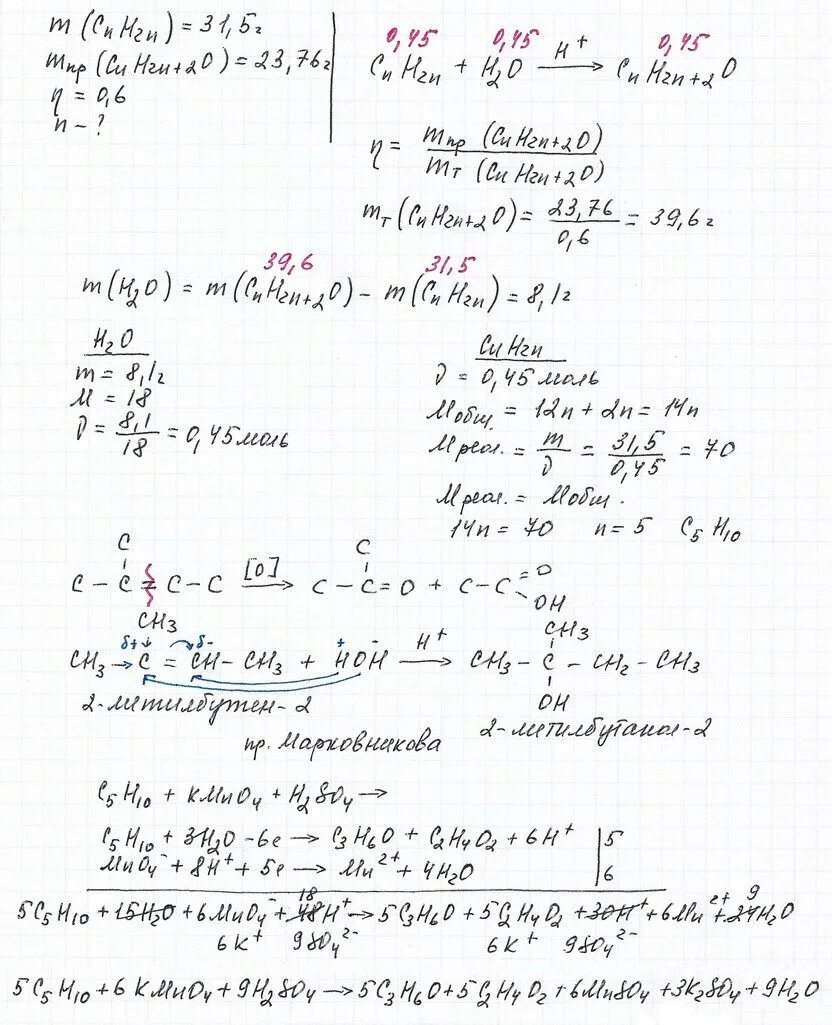 m (CnH2n) = 31,5г
mпр (CnH2n+2O) = 23,76г
η = 0,6
n - ?
0,45 0,45 0,45
CnH2n + H2O H+→ CnH2n+2O
η = mпр (CnH2n+2O) / mт (CnH2n+2O)
mт (CnH2n+2O) = 23,76 / 0,6 = 39,6г
39,6 31,5
m(H2O) = m(CnH2n+2O) - m(CnH2n) = 8,1г
H2O
m = 8,1г
M = 18
ν = 8,1 / 18 = 0,45 моль
CnH2n
ν = 0,45 моль
Mобщ. = 12n + 2n = 14n
Mреал. = m / ν = 31,5 / 0,45 = 70
Mреал. = Mобщ.
14n = 70 n = 5 C5H10
C C
C - C = C - C [O]→ C - C = O + C - C =O
OH
CH3 CH3
δ+ δ- + -
CH3 → C = CH - CH3 + HOH H+→ CH3 - C - CH2 - CH3
OH
2-метилбутен-2
2-метилбутанол-2
пр. Марковникова
C5H10 + KMnO4 + H2SO4 →
C5H10 + 3H2O - 6e → C3H6O + C2H4O2 + 6H+ | 5
MnO4- + 8H+ + 5e → Mn2+ + 4H2O | 6
18 9
5C5H10 + 15H2O + 6MnO4- + 48H+ → 5C3H6O + 5C2H4O2 + 30H+ + 6Mn2+ + 24H2O
6K+ 9SO42- 6K+ 9SO42-
5C5H10 + 6KMnO4 + 9H2SO4 → 5C3H6O + 5C2H4O2 + 6MnSO4 + 3K2SO4 + 9H2O